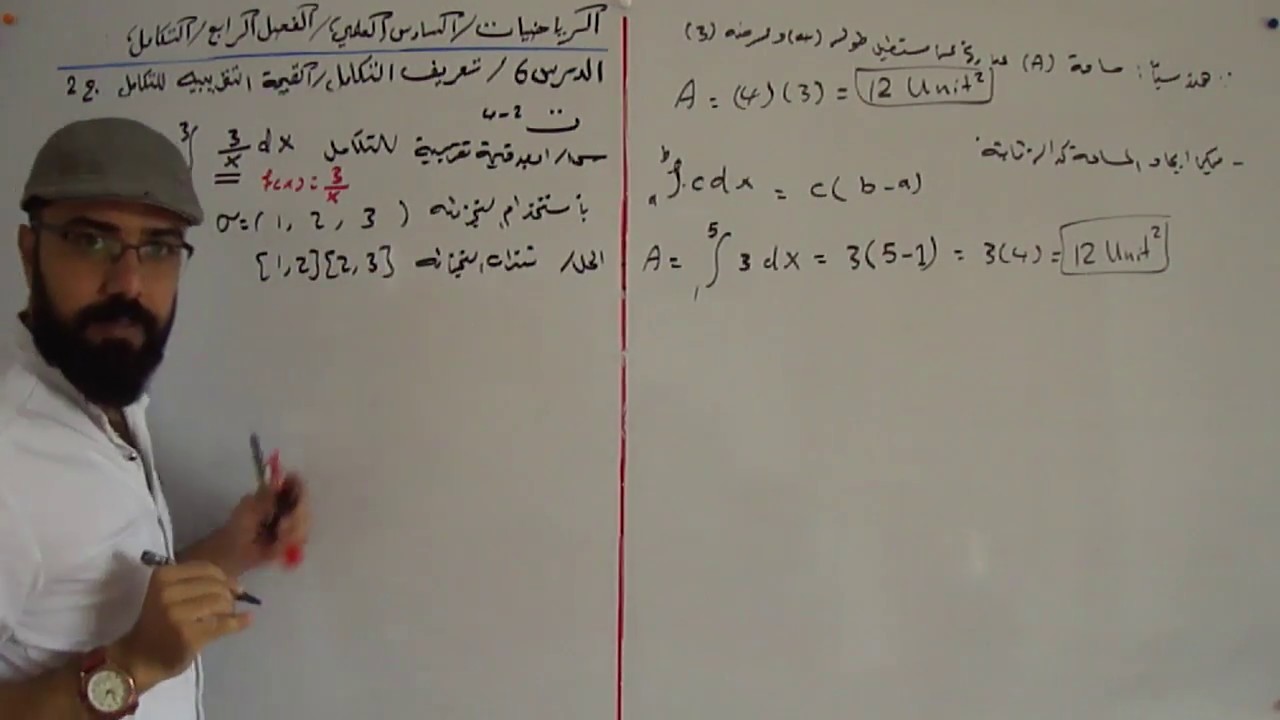 الرياضيات/السادس العلمي/الفصل الرابع/التكامل
الدرس 6/ تعريف التكامل/القيمة التقريبية للتكامل ج 2
ت 2-4
س/ اوجد قيمة تقريبية للتكامل ∫³ 3/x dx
f(x) = 3/x
باستخدام التجزئة σ=(1, 2, 3)
الحل/ فترات التجزئة [1,2][2,3]
هندسياً: مساحة (A) عبارة عن مستطيل طوله (4) وعرضه (3)
A = (4)(3) = 12 Unit²
- يمكن ايجاد المساحة كدالة ثابتة
ₐ∫ᵇ c dx = c(b-a)
A = ₁∫⁵ 3 dx = 3(5-1) = 3(4) = 12 Unit²